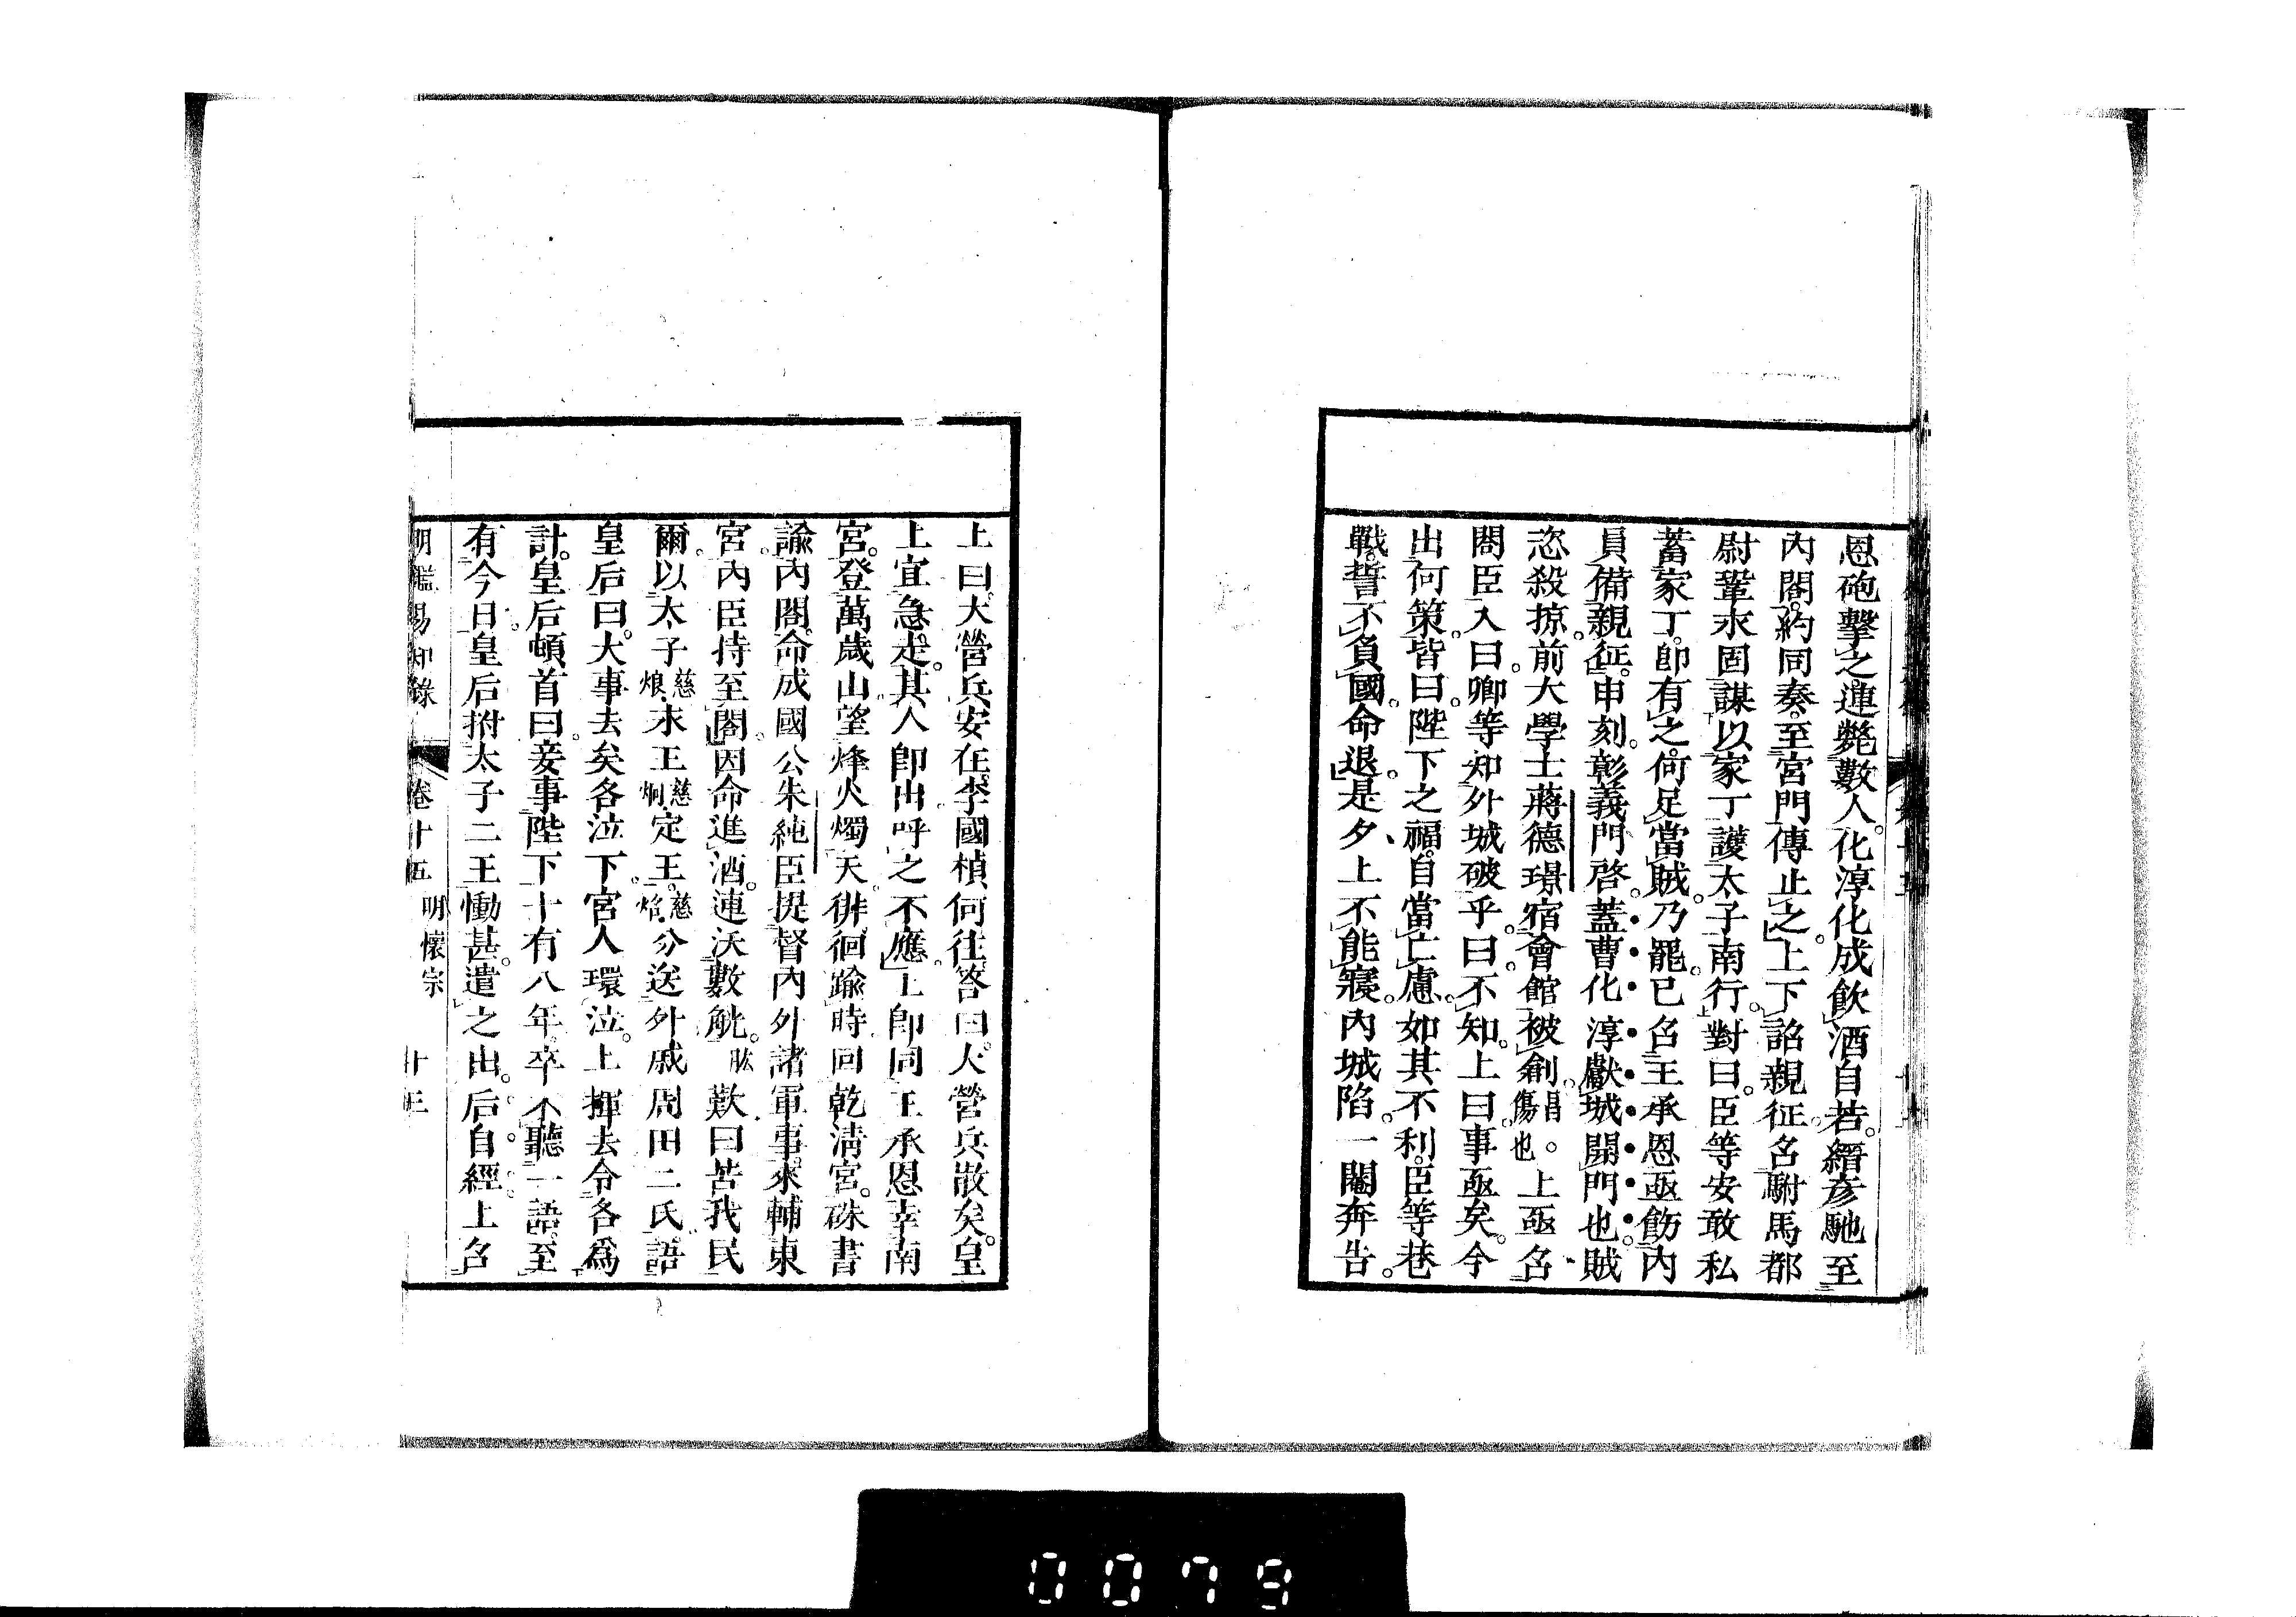 恩砲擊之連斃數人。化淳化成飮酒自若。縉彦馳至
內閣。約同奏。至宮門傳止之。上下詔親征。召駙馬都
尉鞏永固謀以家丁護太子南行。對曰。臣等安敢私
蓄家丁。卽有之。何足當賊。乃罷。已召王承恩亟飭內
員備親征。申刻。彰義門啓。蓋曹化淳獻城開門也。賊
恣殺掠。前大學士蔣德璟宿會館被創。昌傷也。上亟召
閣臣入曰。卿等知外城破乎。曰。不知。上曰。事亟矣。今
出何策。皆曰。陛下之福。自當亡慮。如其不利。臣等巷
戰。誓不負國。命退。是夕、上不能寢。內城陷。一閹奔告。
上曰。大營兵安在。李國楨何往。答曰。大營兵散矣。皇
上宜急走。其人卽出。呼之不應。上卽同王承恩幸南
宮。登萬歲山望烽火燭天。徘徊踰時。回乾淸宮。硃書
諭內閣。命成國公朱純臣提督內外諸軍事。來輔東
宮。內臣持至閣。因命進酒。連沃數觥。肱歎曰。苦我民
爾。以太子慈烺.永王慈炯.定王。慈炤.分送外戚周田二氏。語
皇后曰。大事去矣。各泣下。宮人環泣。上揮去。令各爲
計。皇后頓首曰。妾事陛下十有八年。卒不聽一語。至
有今日。皇后拊太子二王慟甚。遣之出。后自經。上召
明鑑易知錄 卷十五 明懷宗 十三
0079